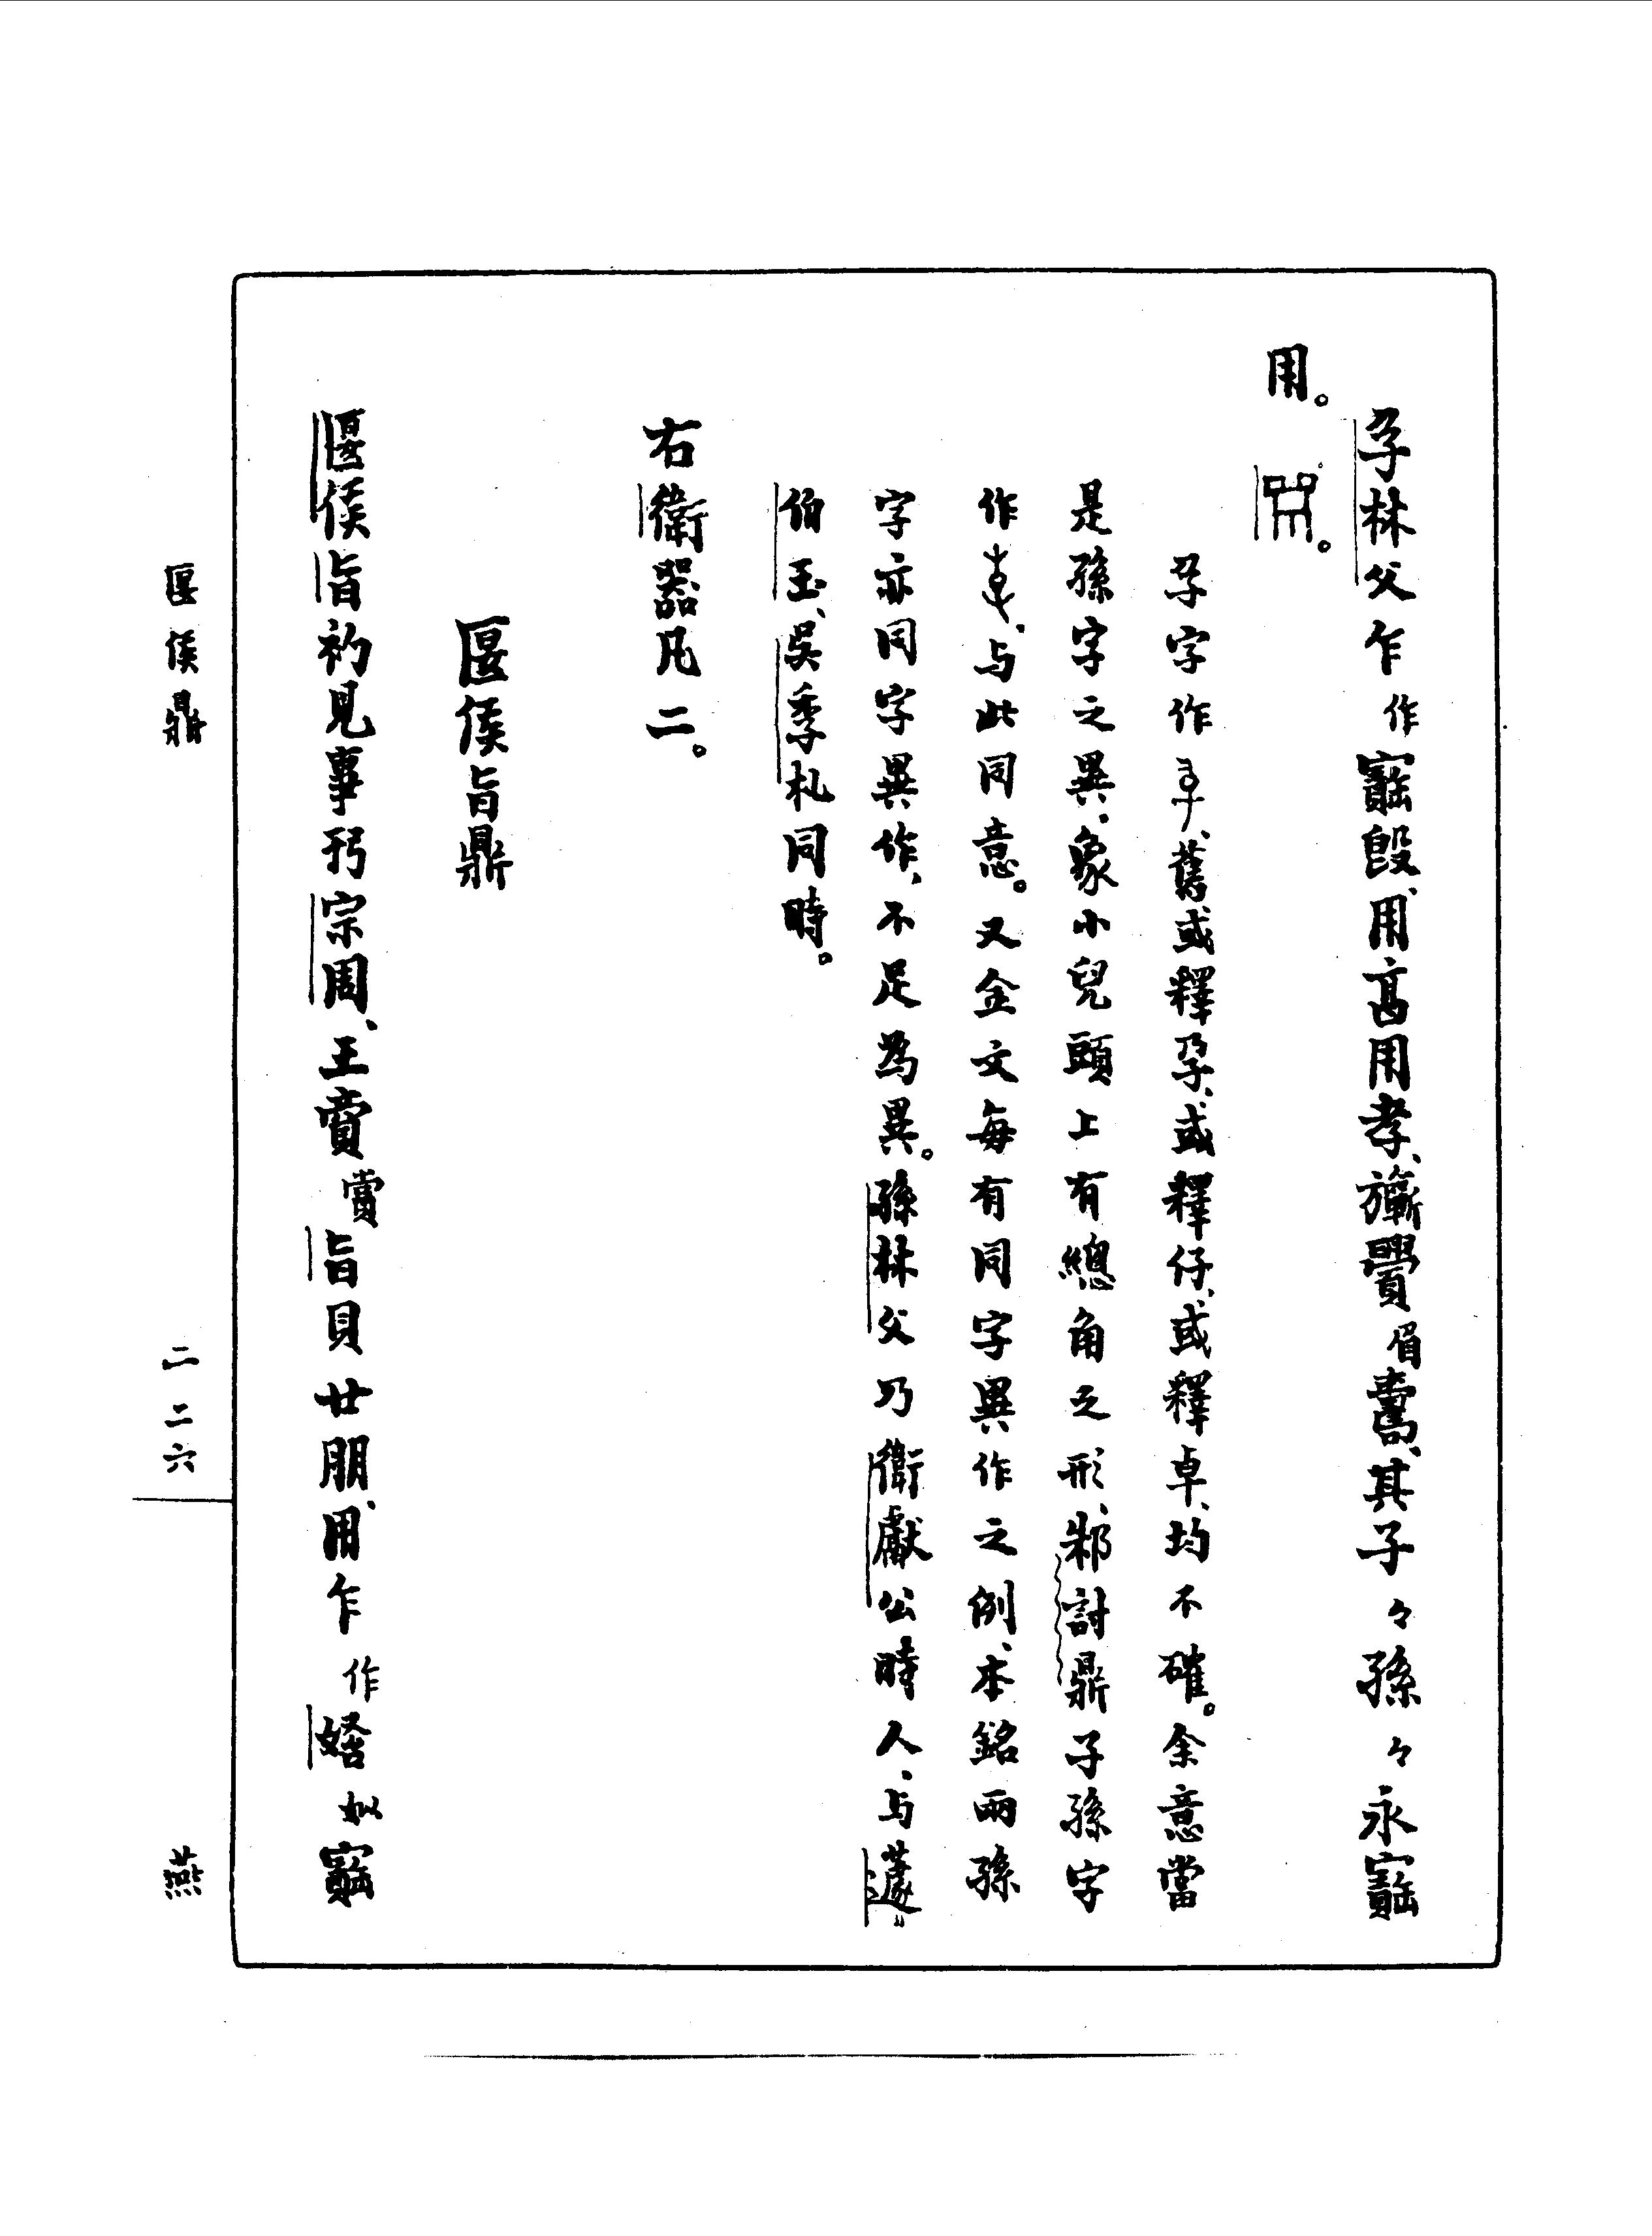 孚林父乍作寶𣪘、用亯用孝、旂眉壽、其子々孫々永寶
用。
孚字作、舊或釋孕、或釋仔、或釋卓、均不確。余意當
是孫字之異、象小兒頭上有總角之形、邾討鼎子孫字
作、与此同意。又金文每有同字異作之例、本銘兩孫
字亦同字異作、不足為異。孫林父乃衛獻公時人、与蘧
伯玉、吳季札同時。
右衛器凡二。
匽侯旨鼎
匽侯旨初見事于宗周、王賞旨貝廿朋、用乍作姒寶
匽侯鼎 二二六 燕